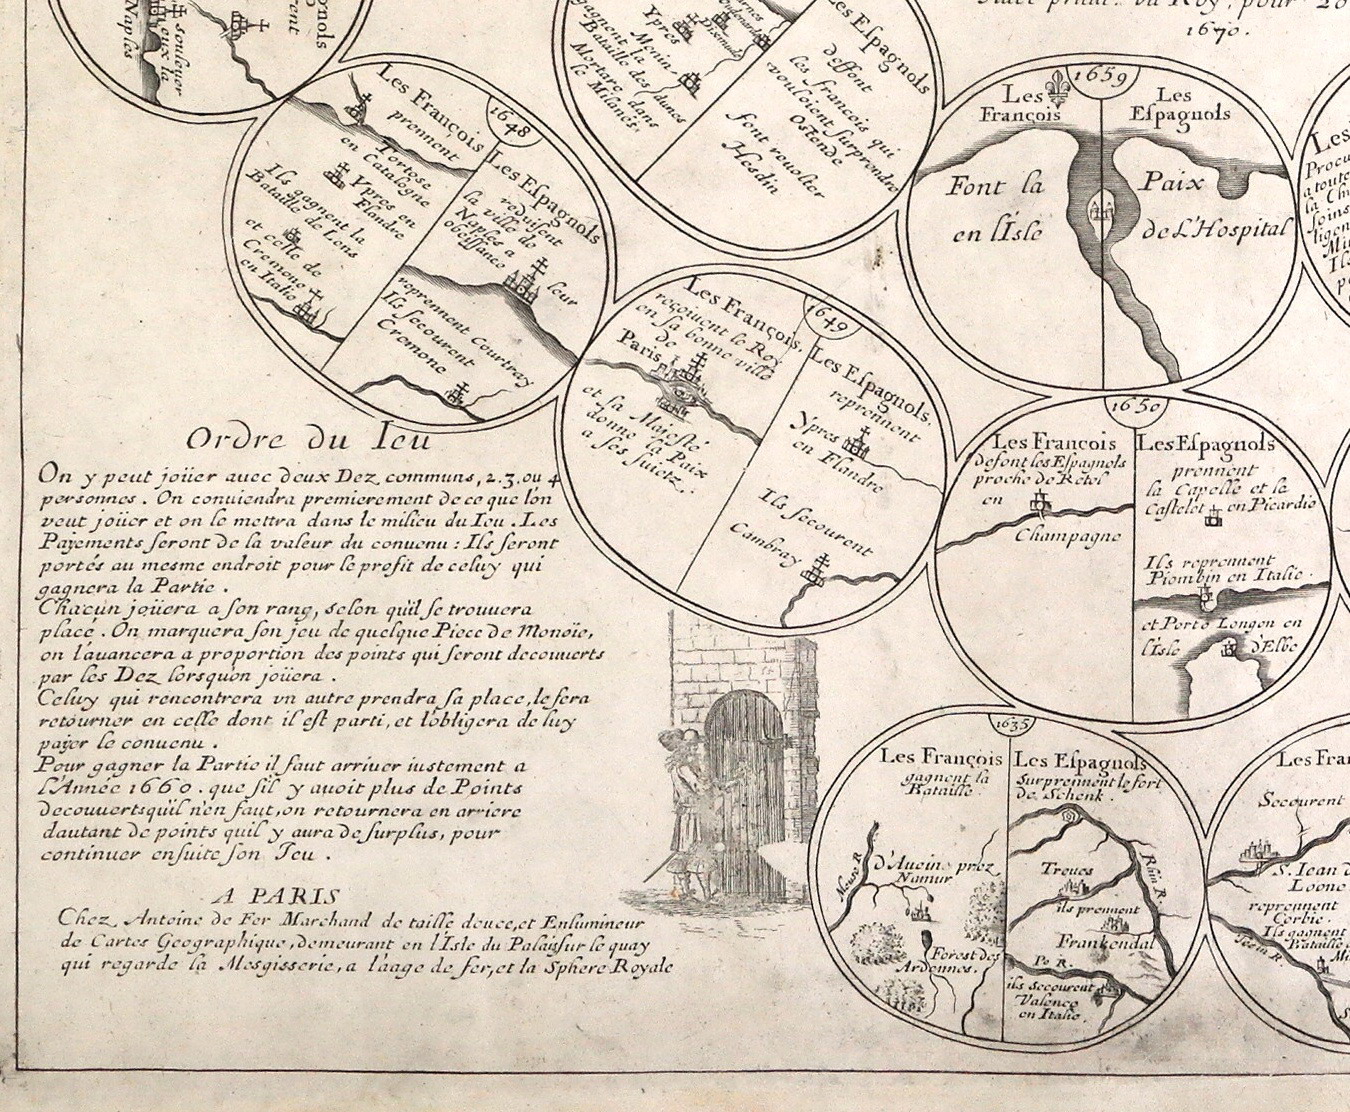 Naples
soulever
Espagnols
gagnent la
Bataille des dunes
Mortare dans
le Milanés.
Ypres
Menin
Les Espagnols
deffont
les francois qui
vouloient surprendre
Ostende
font revolter
Hesdin
1670.
1648
Les François
prennent
Tortose
en Catalogne
Ypres en
Flandre
Ils gagnent la
Bataille de Lens
et celle de
Cremone
en Italie
Les Espagnols
reduisent
la ville de
Naples a
obeissance
leur
reprennent Courtray
Ils secourent
Cremone
1659
Les François
Font la
en l'Isle
Les Espagnols
Paix
de L'Hospital
1649
Les François,
reçoiuent le Roy
en sa bonne ville
de
Paris
et sa Majesté
donne la Paix
a ses suietz.
Les Espagnols.
reprennent
Ypres
en Flandre
Ils secourent
Cambray
1650
Les François
defont les Espagnols
proche de Retel
en
Champagne
Les Espagnols
prennent
la Capelle et le
Castelet en Picardie
Ils reprennent
Piombin en Italie.
et Porto Longon en
l'Isle d'Elbe
Ordre du Ieu
On y peut joüer avec deux Dez communs, 2.3. ou 4
personnes. On conuiendra premierement de ce que l'on
veut joüer et on le mettra dans le milieu du Ieu. Les
Payements seront de la valeur du conuenu: Ils seront
portés au mesme endroit pour le profit de celuy qui
gagnera la Partie.
Chacun joüera a son rang, selon qu'il se trouuera
placé. On marquera son jeu de quelque Piece de Monoie,
on l'auancera a proportion des points qui seront decouuerts
par les Dez lorsquon joüera.
Celuy qui rencontrera vn autre prendra sa place, le fera
retourner en celle dont il est parti, et l'obligera de luy
payer le conuenu.
Pour gagner la Partie il faut arriuer iustement a
l'Année 1660. que s'il y auoit plus de Points
decouuerts qu'il n'en faut, on retournera en arriere
dautant de points quil y aura de surplus, pour
continuer ensuite son Jeu.
A PARIS
Chez Antoine de Fer Marchand de taille douce, et Enlumineur
de Cartes Geographique, demeurant en l'Isle du Palais sur le quay
qui regarde la Mesgisserie, a l'aage de fer, et la Sphere Royale
1635
Les François
gagnent la
Bataille
d'Aucine prez
Namur
Meuse R.
Forest des
Ardennes.
Les Espagnols
Surprennent le fort
de Schenk.
Rhin R.
Treues
ils prennent
Frankendal
Po R.
ils secourent
Valence
en Italie.
Les Fra
Secourent
S. Iean d
Loone
reprennent
Corbie.
Ils gagnent
Bataille
Tesin R.